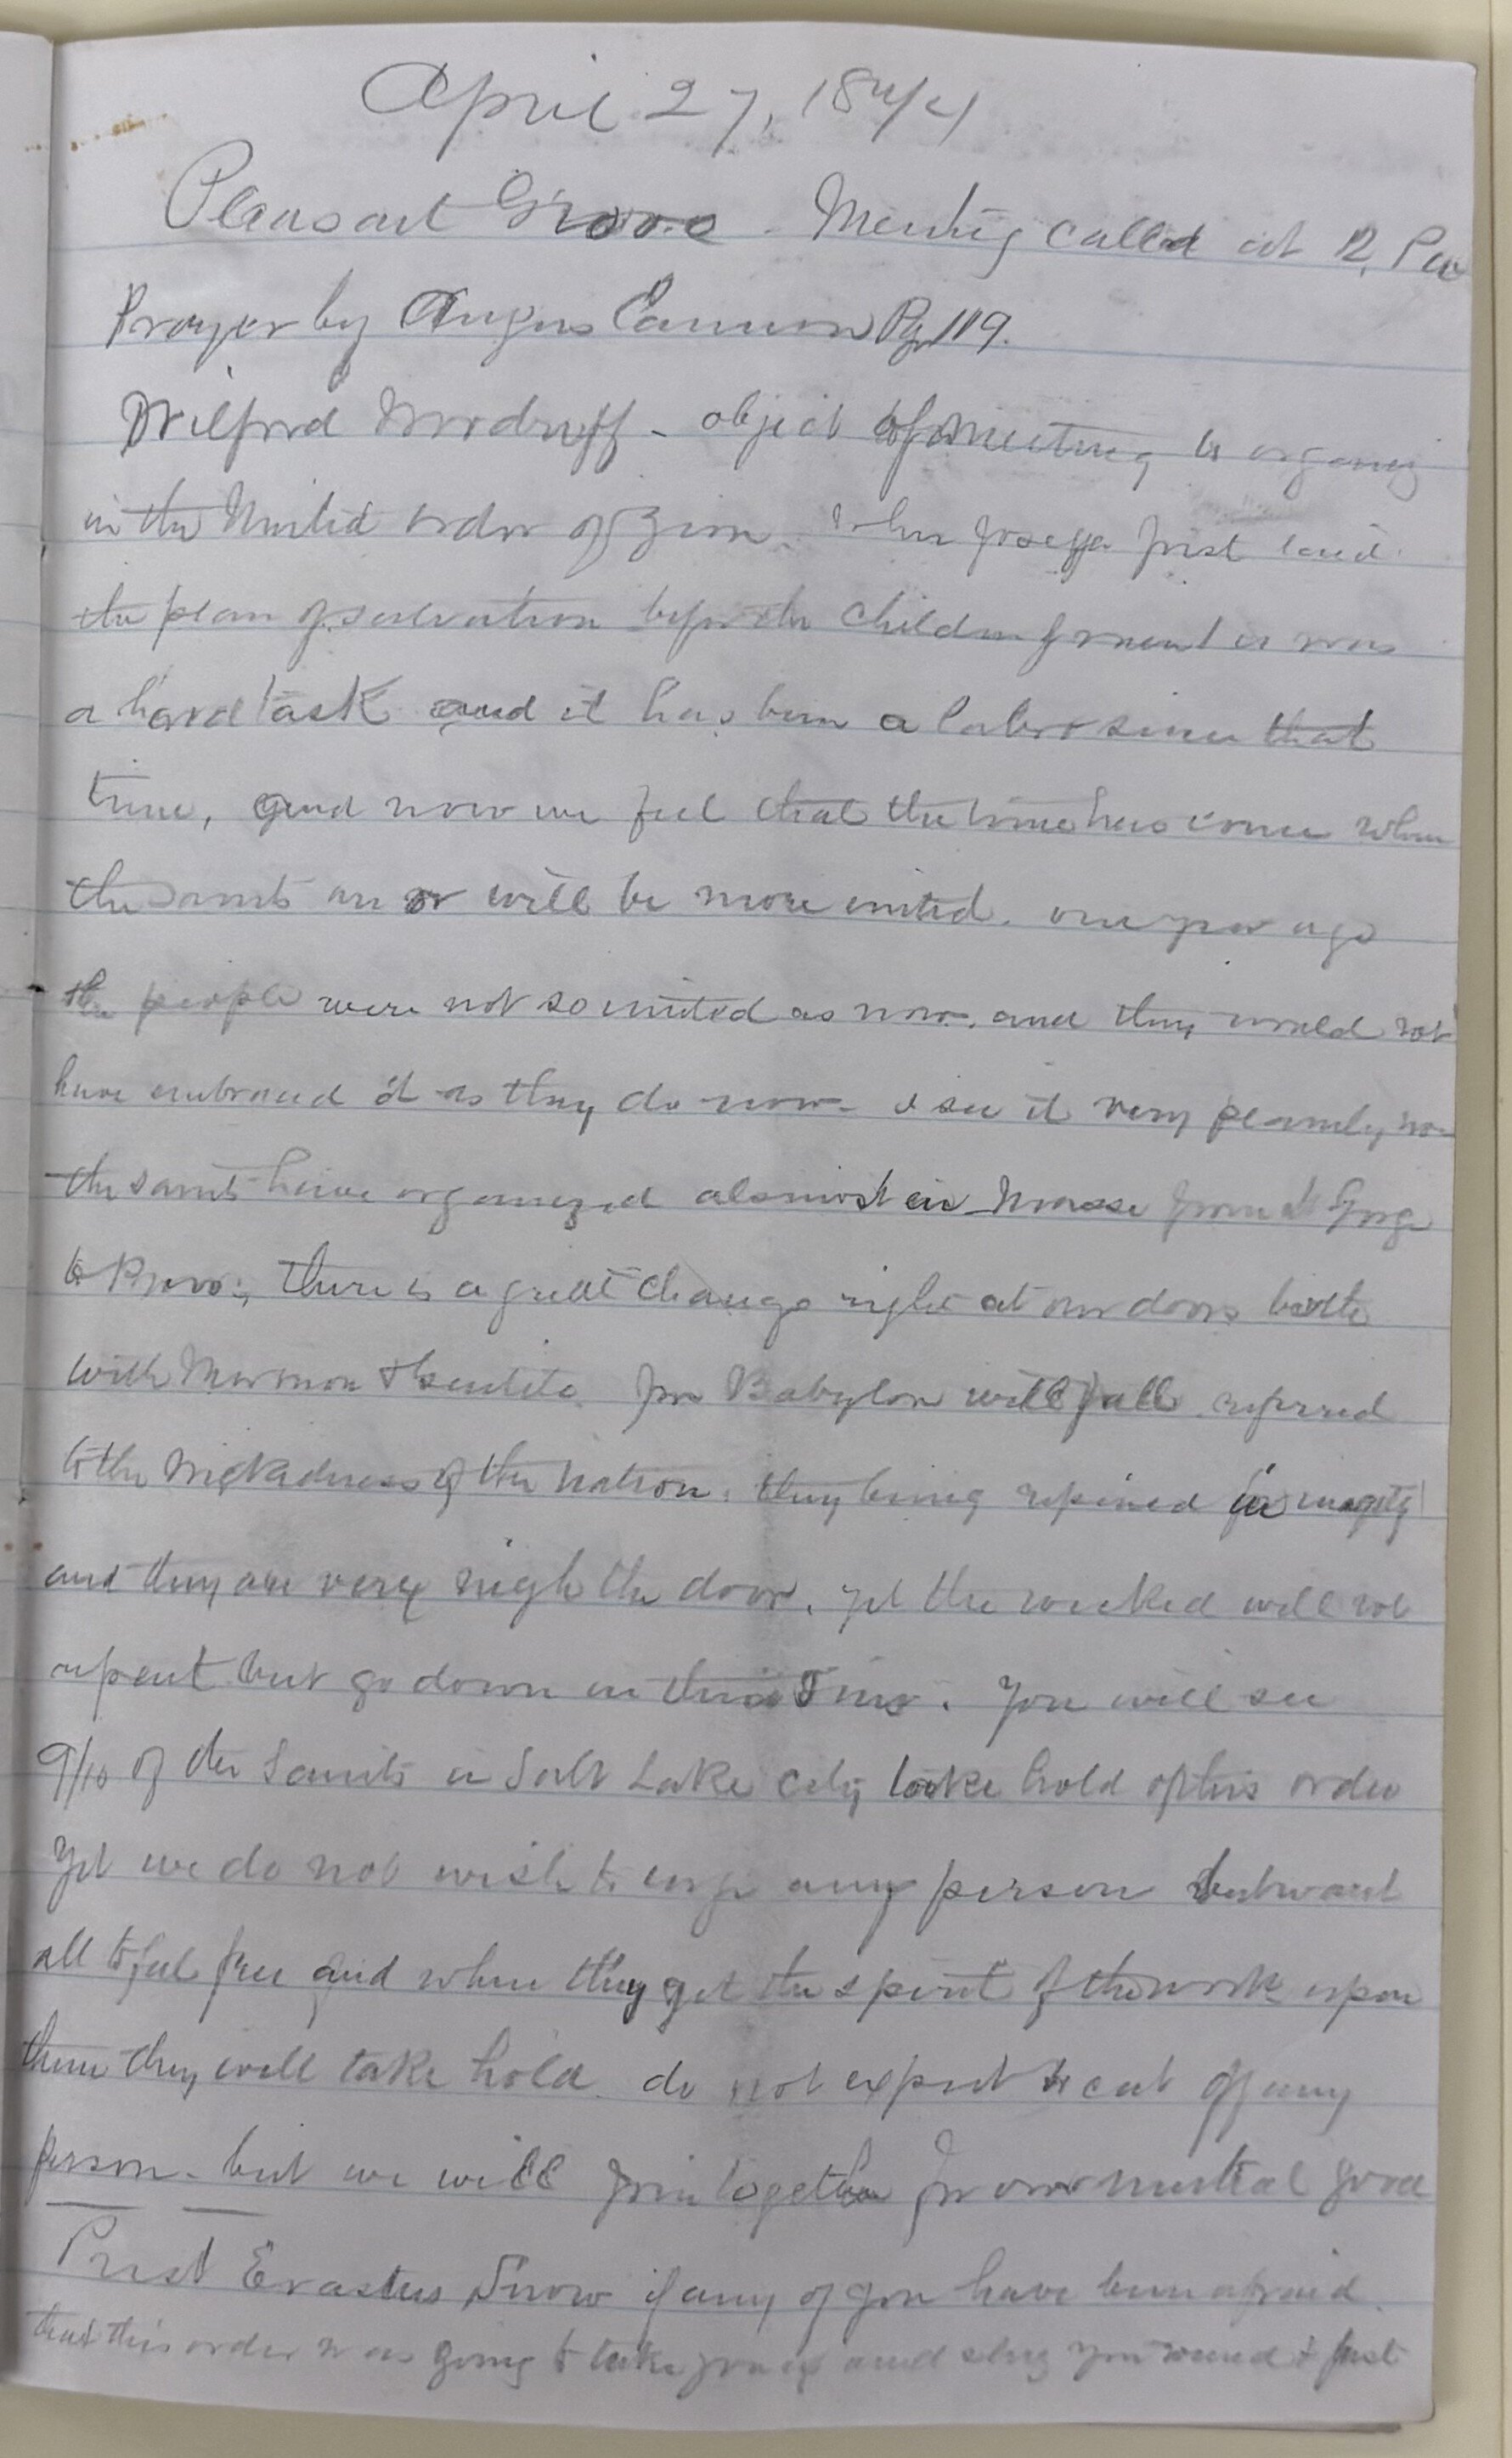 April 27, 1874
Pleasant Grove. Meeting called at 12, P M
Prayer by Angus Cannon Pg 119.
Wilford Woodruff - object of meeting to organiz
in the United order of Zion. When Joseph first laid
the plan of salvation before the children of men it was
a hard task and it has been a labor since that
time, and now we feel that the time has come when
the saints are or will be more united. one year ago
the people were not so united as now, and they would not
have embraced it as they do now - I see it very plainly, now
the saints have organized alsmost in Masse from St Gorge
to Provo; there is a great change right at our doors both
with Mormon & Gentile. for Babylon will fall. refered
to the wickedness of the Nation. they being ripined in
and they are very nigh the door. yet the wicked will not
repent but go down in their Sins. You will see
9/10 of the Saints in Salt Lake City take hold of this order
Yet we do not wish to urge any person but want
all to feel free and when they get the spirit of the work upon
them they will take hold. do not expect to cut off any
person - but we will join together for our mutual good
Prest Erastus Snow if any of you have been afraid
that this order was going to take you up and sling you round & fast